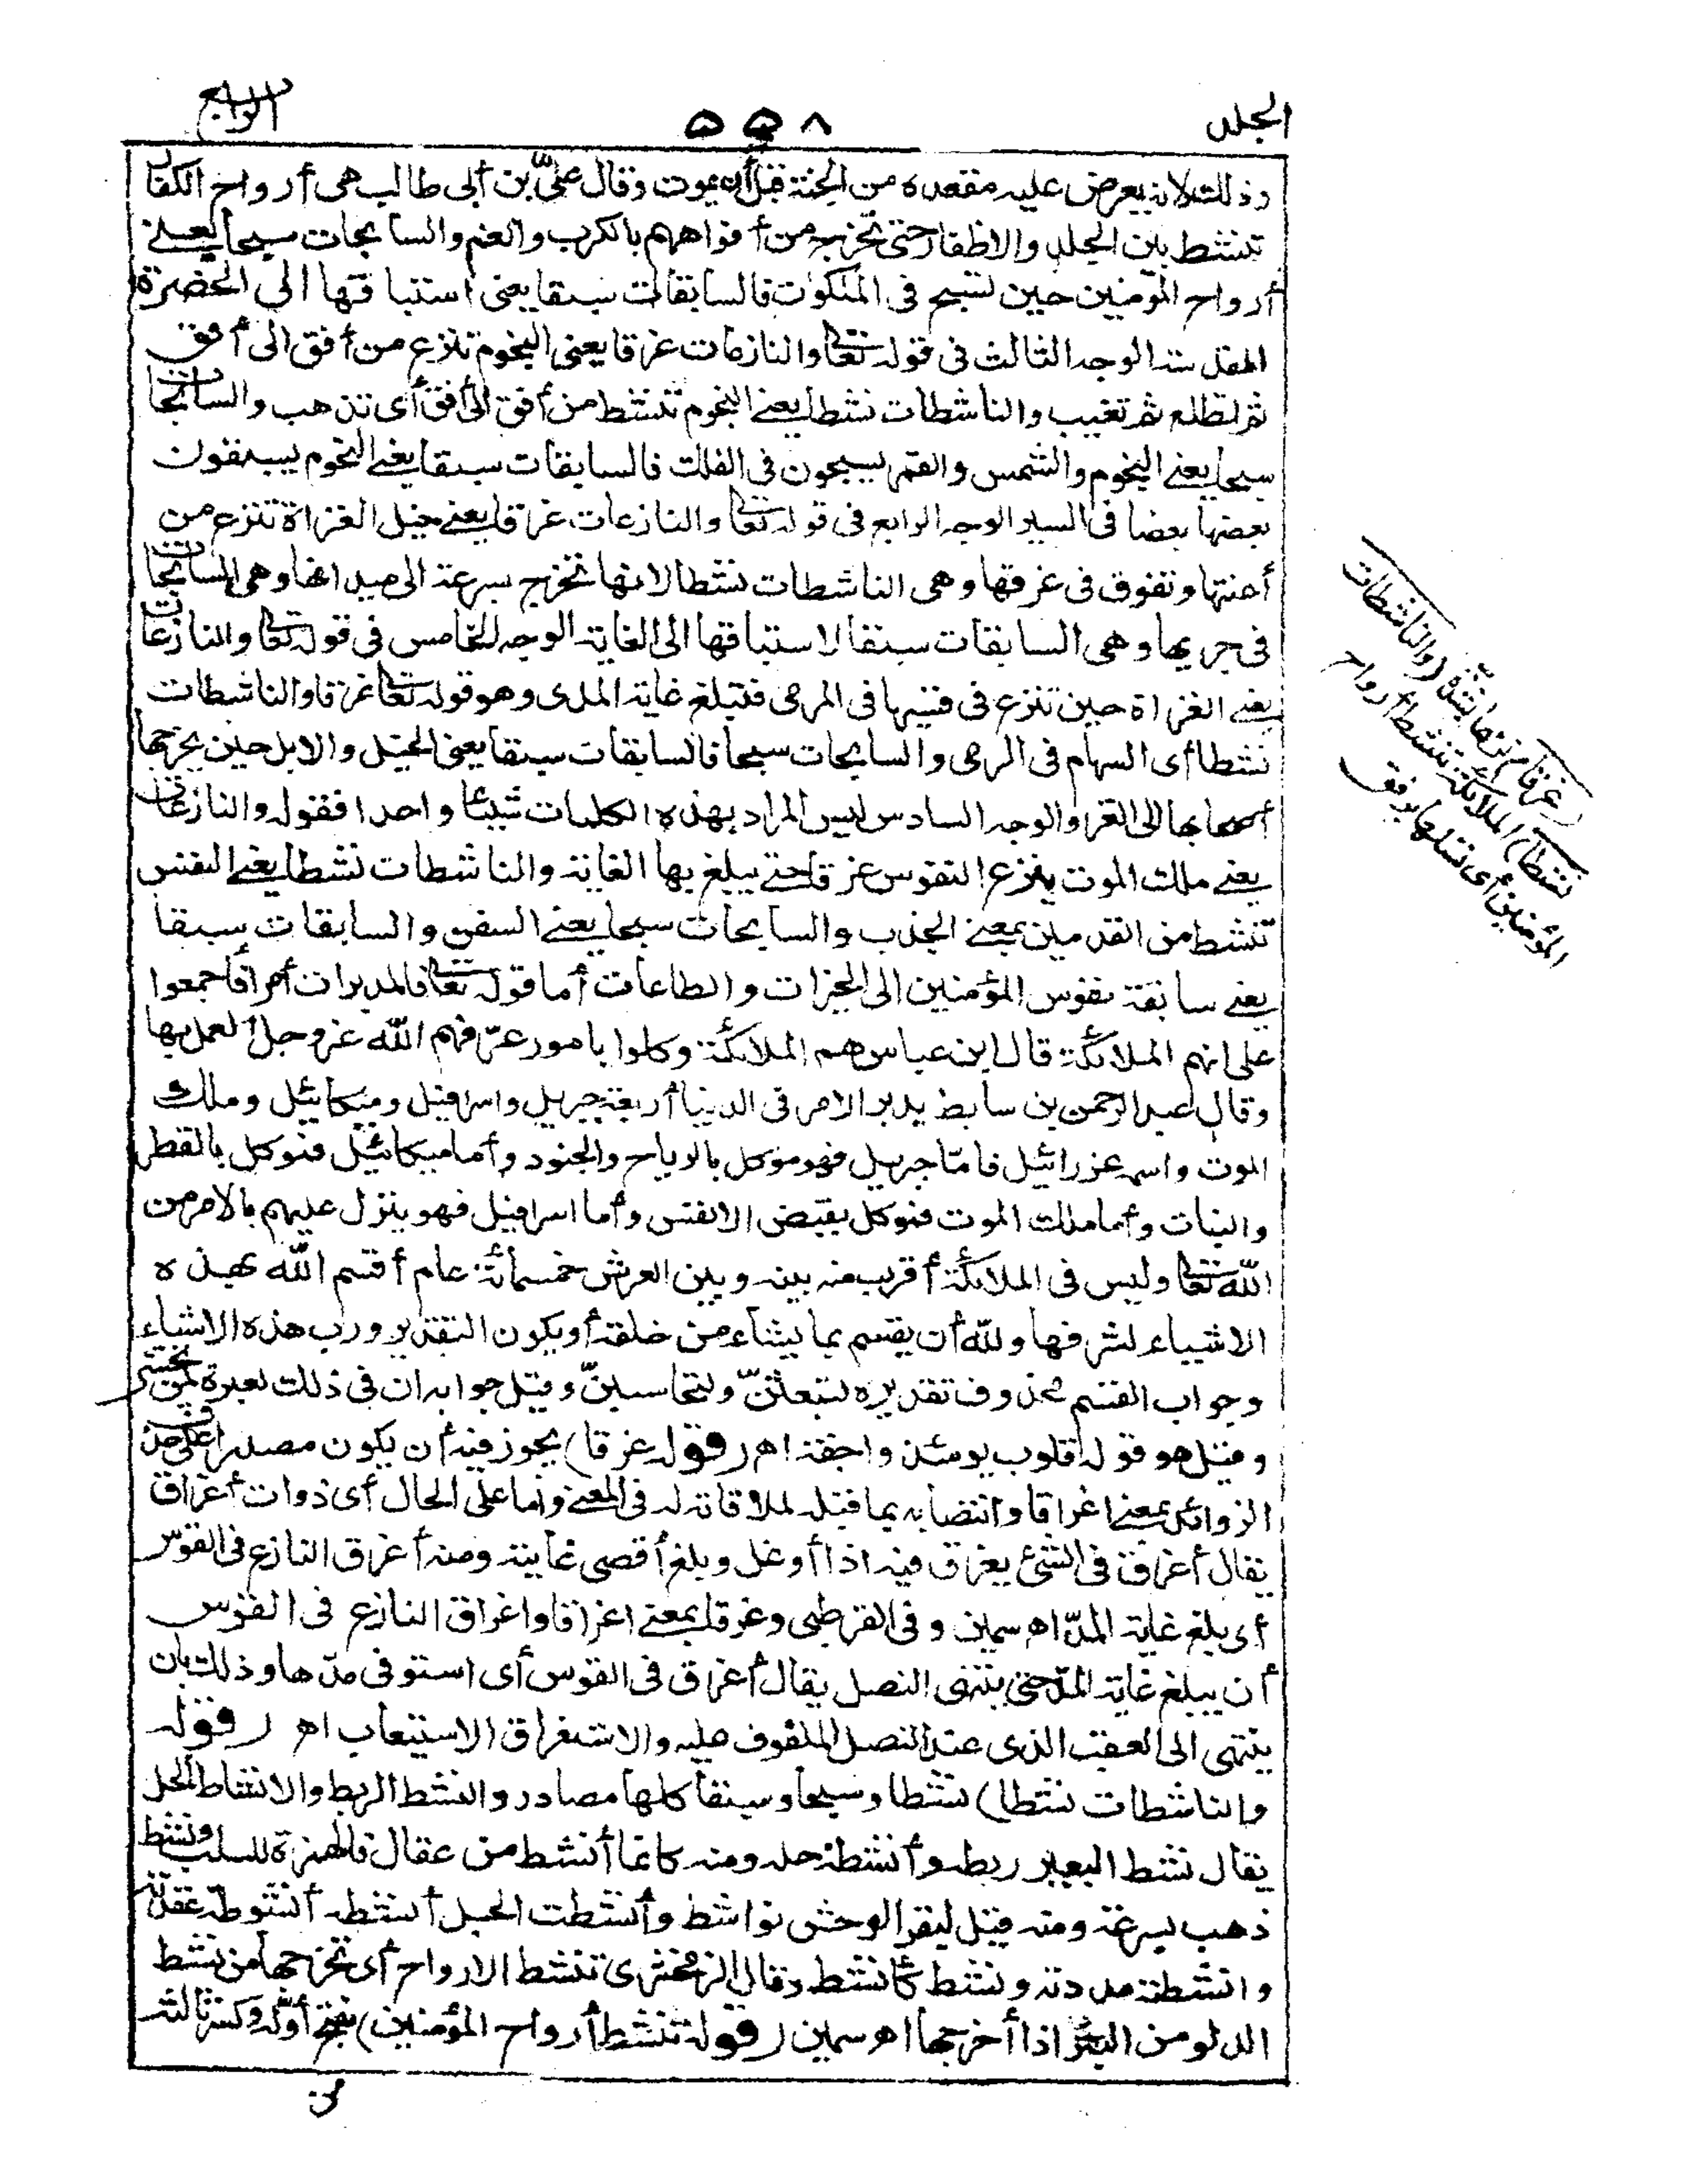 الجلد
٥٥٨
الرابع
وذلك لانه يعرض عليه مقعده من الجنة قبل أن يموت وقال علىّ بن أبى طالب هى أرواح الكفار
تنشط بين الجلد والاظفار حتى تخرج من أفواههم بالكرب والغم والسابحات سبحا يعنى
أرواح المؤمنين حين تسبح فى الملكوت فالسابقات سبقا يعنى استباقها الى الحضرة
المقدسة الوجه الثالث فى قوله تعالى والنازعات غرقا يعنى النجوم تنزع من أفق الى أفق
ثم تطلع ثم تغيب والناشطات نشطا يعنى النجوم تنشط من أفق الى أفق أى تذهب والسابحات
سبحا يعنى النجوم والشمس والقمر يسبحون فى الفلك فالسابقات سبقا يعنى النجوم يسبقون
بعضها بعضا فى السير الوجه الرابع فى قوله تعالى والنازعات غرقا يعنى خيل الغزاة تنزع من
أعنتها وتفوق فى غرقها وهى الناشطات نشطا لانها تخرج بسرعة الى ميدانها وهى السابحات
فى جريها وهى السابقات سبقا لاستباقها الى الغاية الوجه الخامس فى قوله تعالى والنازعات
يعنى الغزاة حين تنزع فى قسيها فى الرمى فتبلغ غاية المدى وهو قوله تعالى غرقا والناشطات
نشطا أى السهام فى الرمى والسابحات سبحا فالسابقات سبقا يعنى الخيل والابل حين يخرجها
أصحابها الى الغزو الوجه السادس ليس المراد بهذه الكلمات شيئا واحدا فقوله والنازعات
يعنى ملك الموت ينزع النفوس غرقا حتى يبلغ بها الغاية والناشطات نشطا يعنى النفس
تنشط من القدمين بمعنى الجذب والسابحات سبحا يعنى السفن والسابقات سبقا
يعنى سابقة نفوس المؤمنين الى الخيرات والطاعات أما قوله تعالى فالمدبرات أمرا فأجمعوا
على انهم الملائكة قال ابن عباس هم الملائكة وكلوا بامور عرّفهم الله عز وجل العمل بها
وقال عبد الرحمن بن سابط يدبر الامر فى الدنيا أربعة جبريل واسرافيل وميكائيل وملك
الموت واسمه عزرائيل فامّا جبريل فهو موكل بالرياح والجنود وأما ميكائيل فموكل بالقطر
والنبات وأما ملك الموت فموكل بقبض الانفس وأما اسرافيل فهو ينزل عليهم بالامر من
الله تعالى وليس فى الملائكة أقرب منه بينه وبين العرش خمسمائة عام أقسم الله بهذه
الاشياء لشرفها ولله أن يقسم بما يشاء من خلقه أو يكون التقدير ورب هذه الاشياء
وجواب القسم محذوف تقديره لتبعثنّ ولتحاسبنّ وقيل جوابه ان فى ذلك لعبرة لمن يخشى
وقيل هو قوله قلوب يومئذ واجفة اه (قوله غرقا) يجوز فيه أن يكون مصدرا على حذف
الزوائد بمعنى اغراقا وانتصابه بما قبله لملاقاته له فى المعنى وأما على الحال أى ذوات أغراق
يقال أغرق فى الشئ يغرق فيه اذا أوغل وبلغ أقصى غايته ومنه أغرق النازع فى القوس
أى بلغ غاية المدّ اه سمين وفى القرطبى وغرقا بمعنى اغراقا واغراق النازع فى القوس
أن يبلغ غاية المدّ حتى ينتهى النصل يقال أغرق فى القوس أى استوفى مدّها وذلك بان
ينتهى الى العقب الذى عند النصل الملفوف عليه والاستغراق الاستيعاب اه (قوله
والناشطات نشطا) نشطا وسبحا وسبقا كلها مصادر والنشط الربط والانشاط الحل
يقال نشط البعير ربطه وأنشطه حله ومنه كانما أنشط من عقال فالهمزة للسلب ونشط
ذهب بسرعة ومنه قيل لبقر الوحش نواشط وأنشطت الحبل أنشطه أنشوطة عقدته
وانشطته مددته ونشط كأنشط وقال الزمخشرى تنشط الارواح أى تخرجها من نشط
الدلو من البئر اذا أخرجها اه سمين (قوله تنشط أرواح المؤمنين) بفتح أوله وكسر ثالثه
من
(غرقا) نزعا بشدّة (والناشطات
نشطا) الملائكة تنشط أرواح
المؤمنين أى تسلها برفق